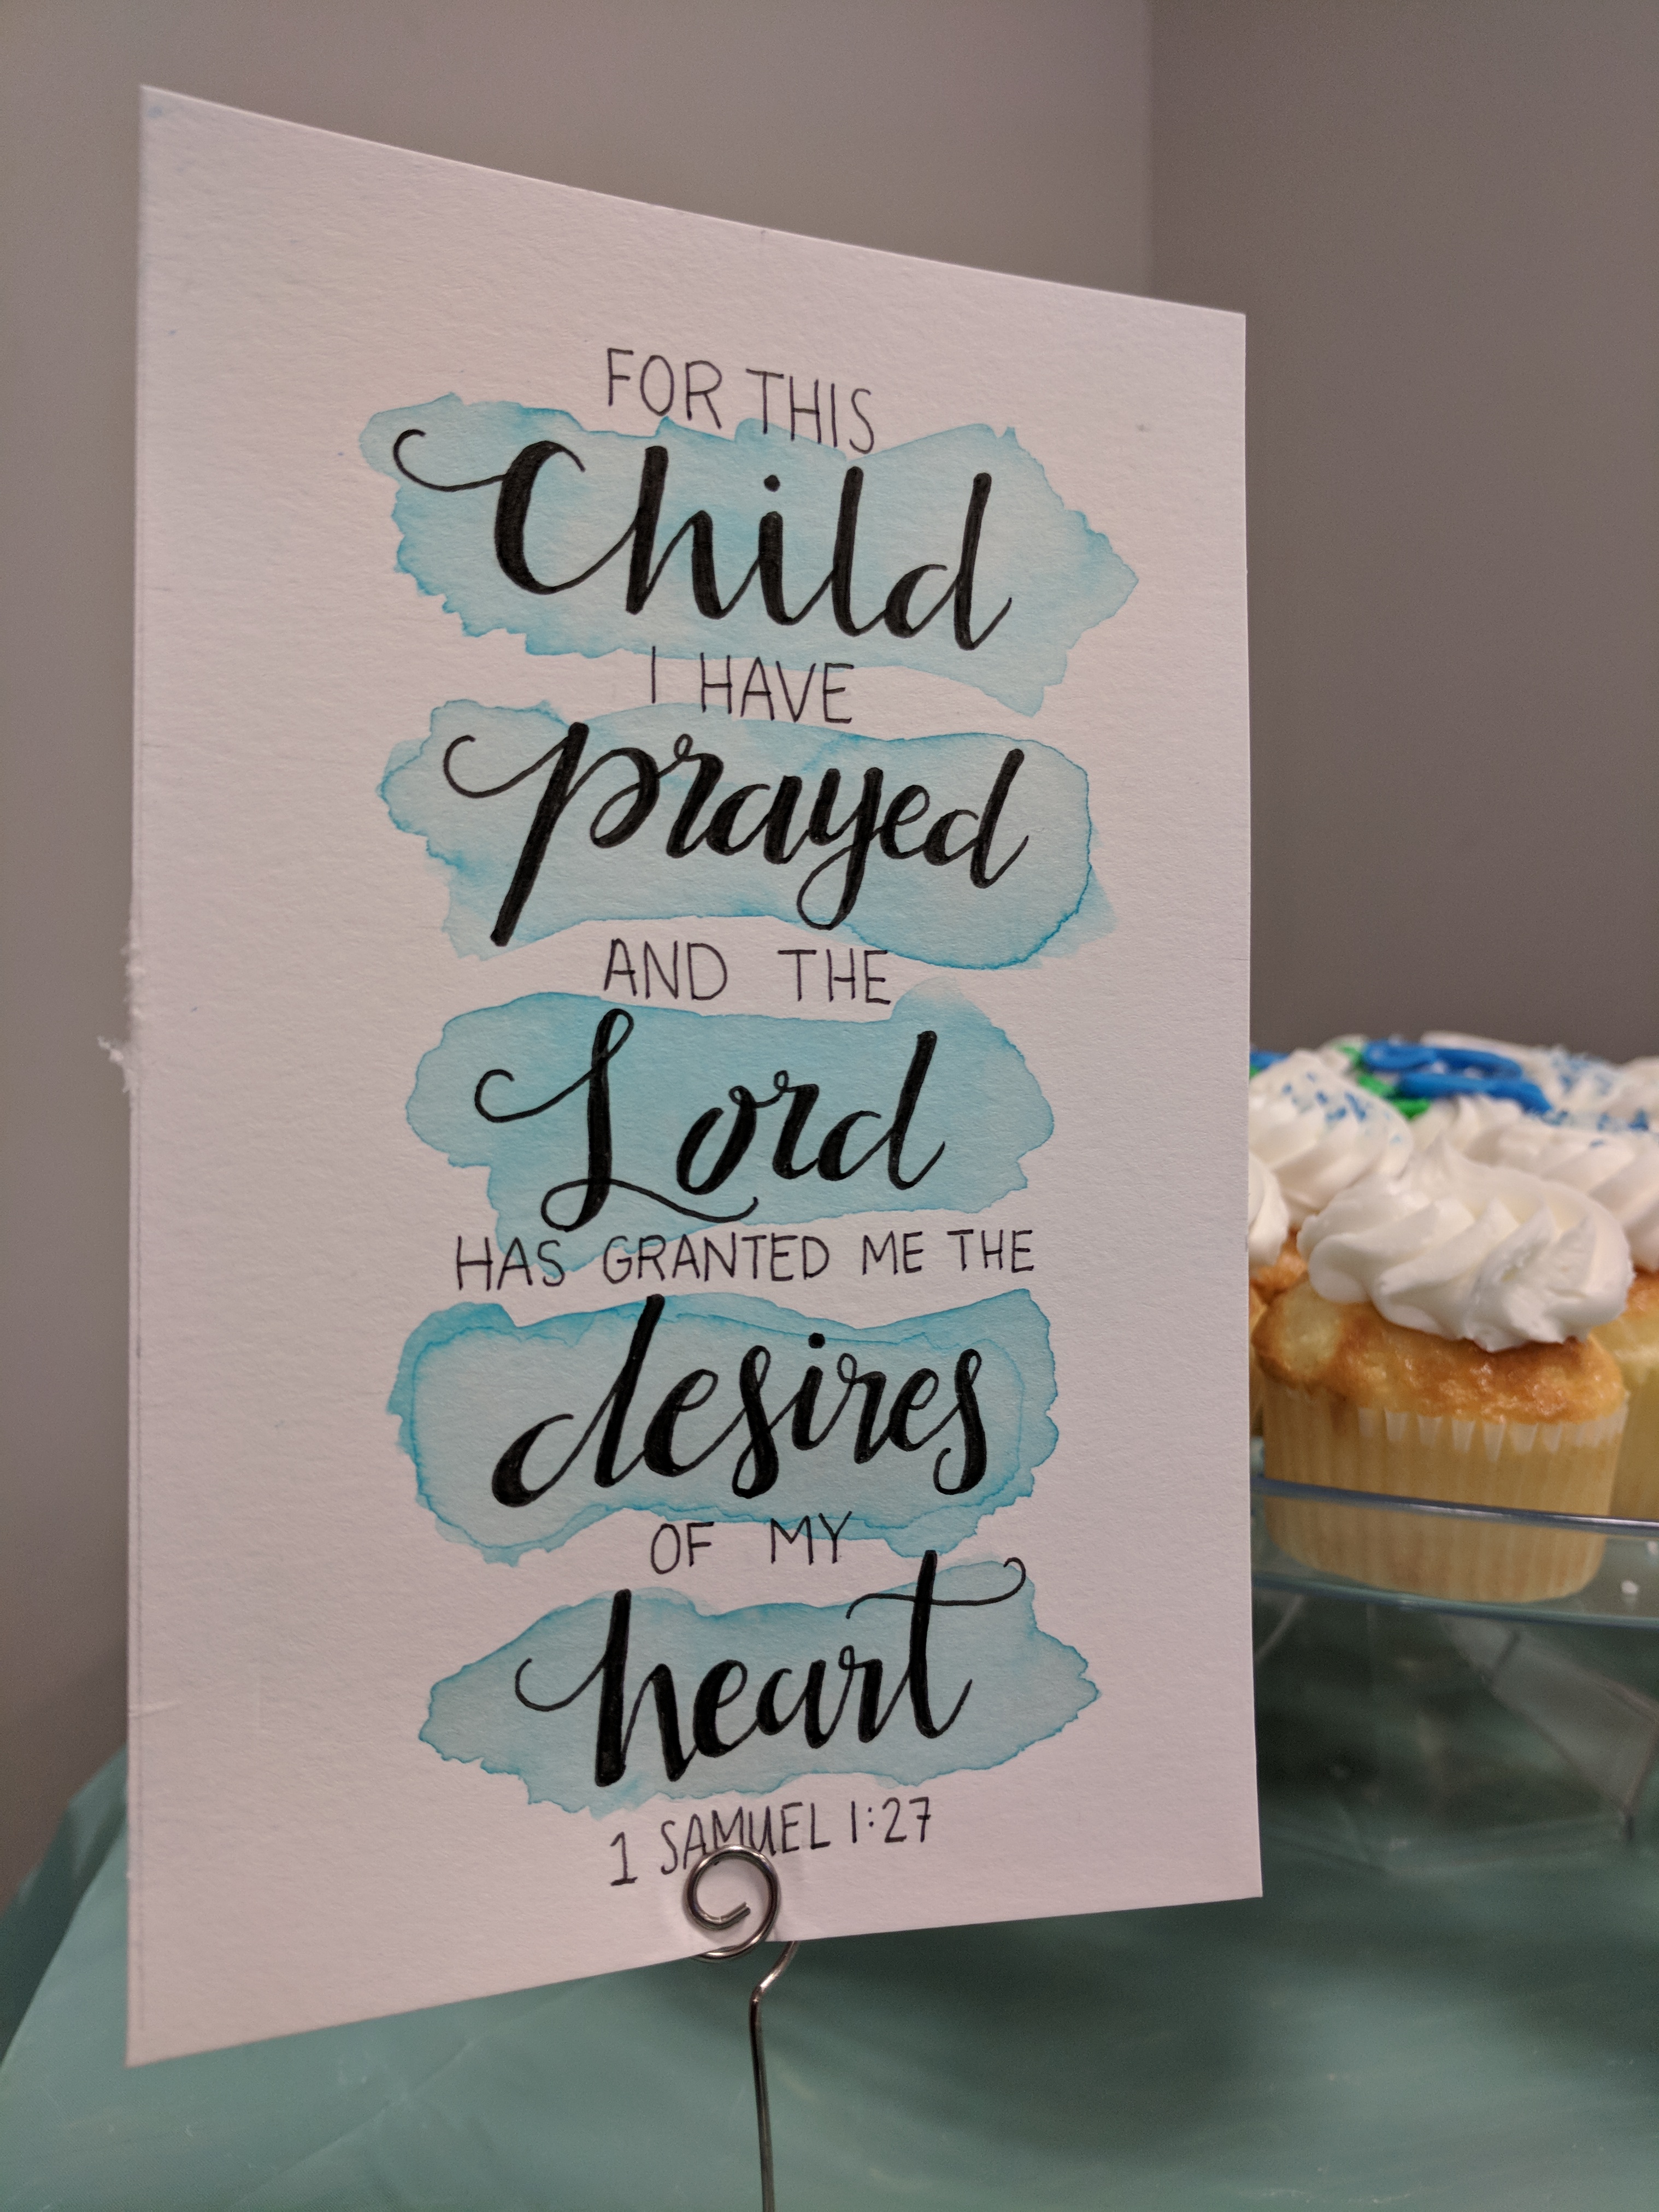 FOR THIS
Child
I HAVE
prayed
AND THE
Lord
HAS GRANTED ME THE
desires
OF MY
heart
1 SAMUEL 1:27